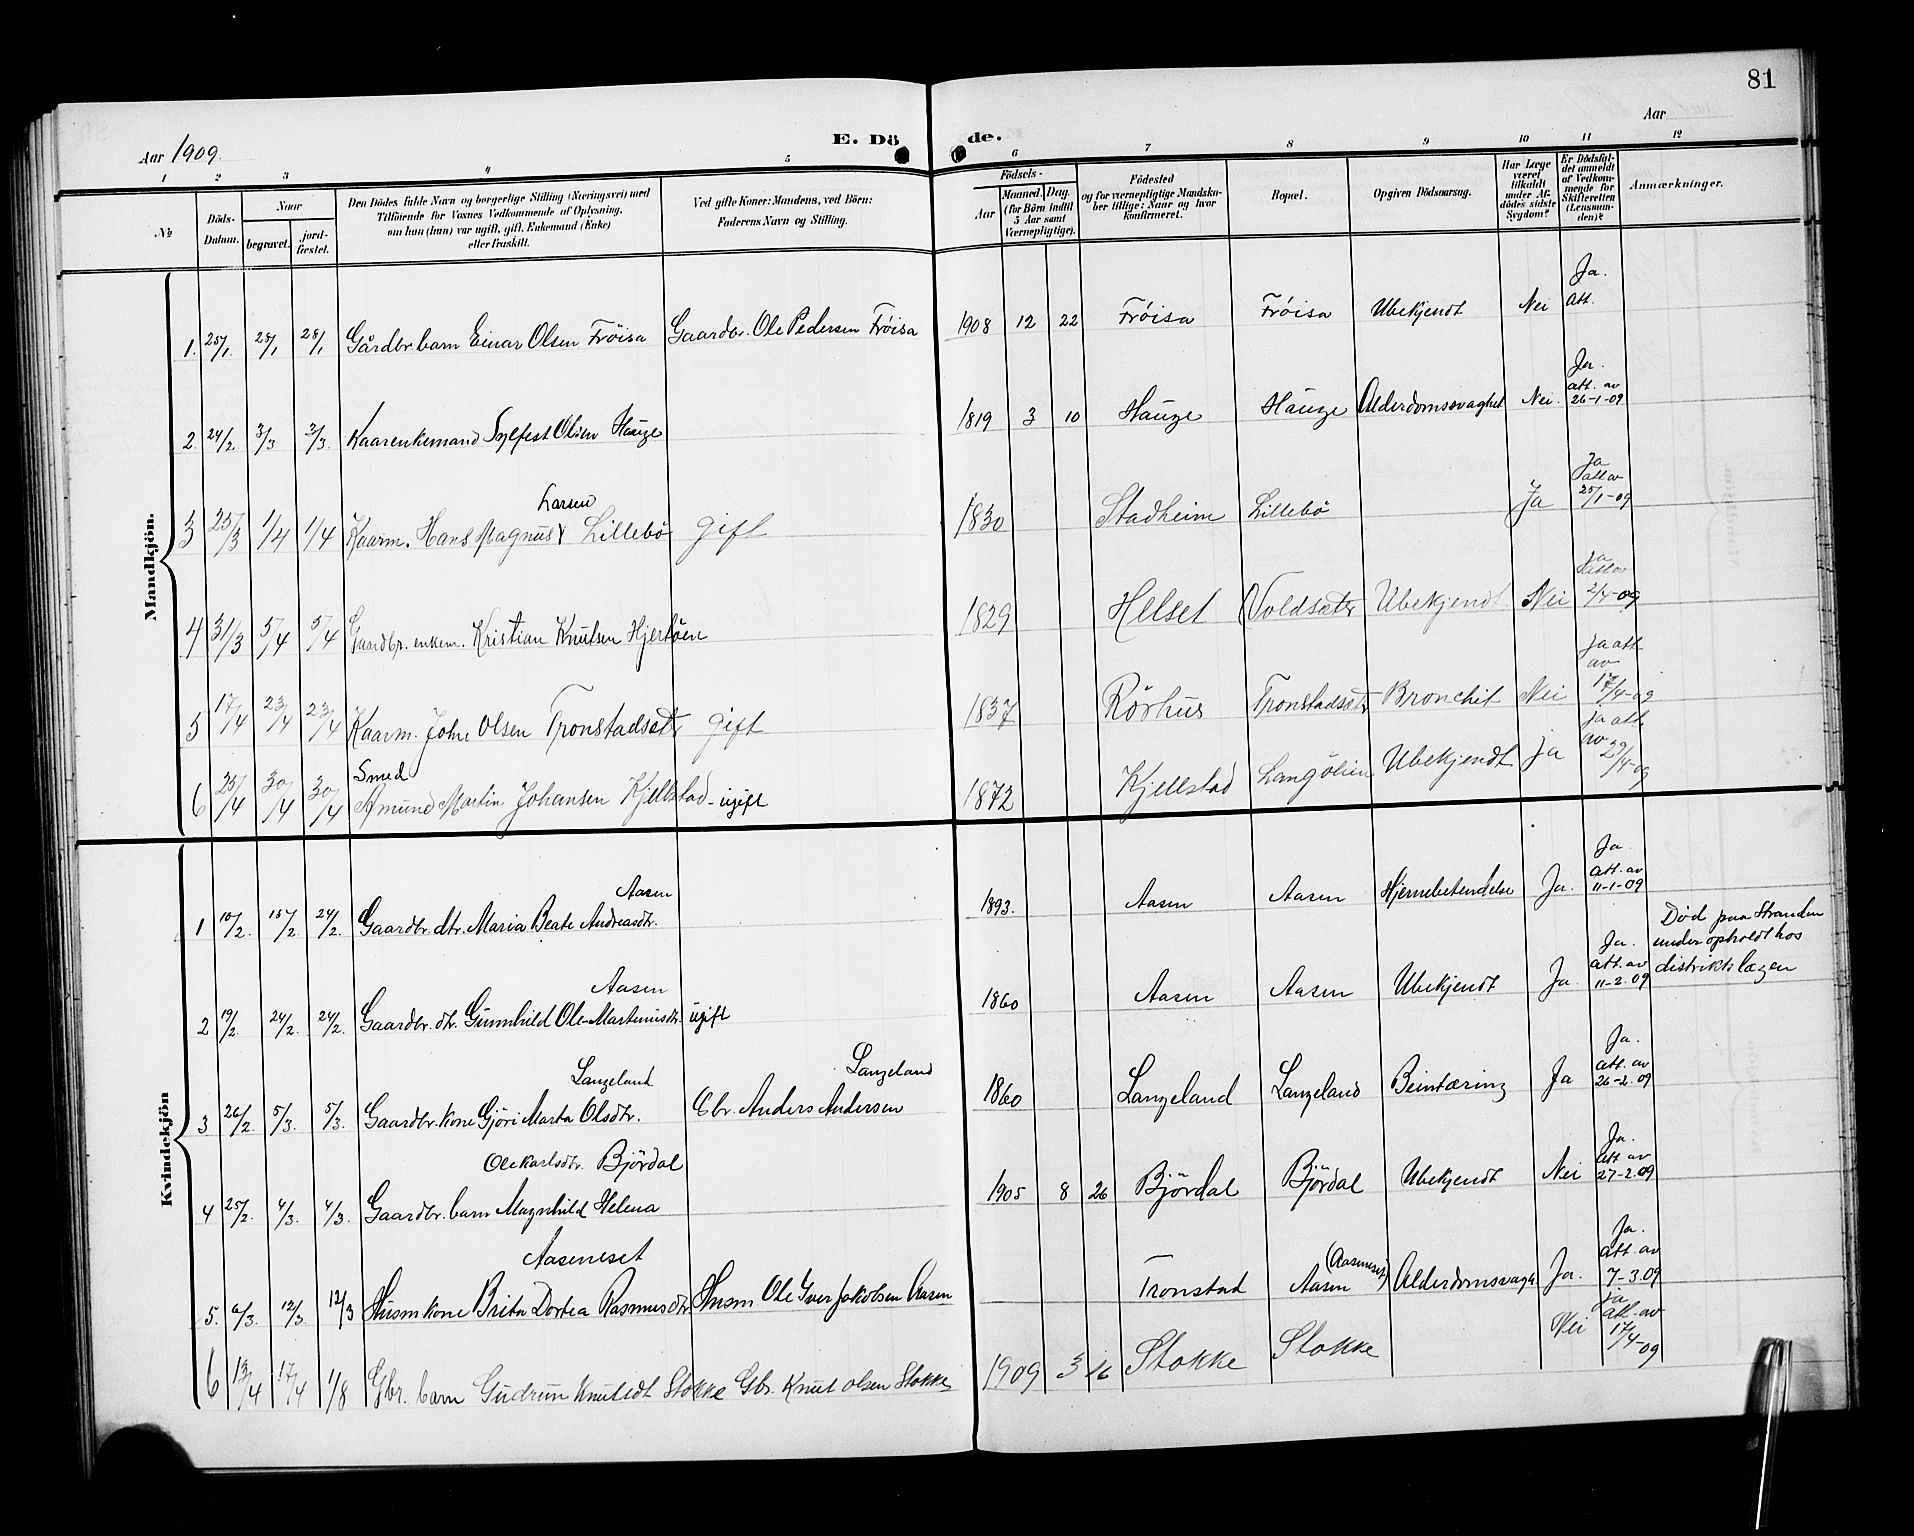 81
Aar 1909.
E. Döde.
Aar
1 2 3 4 5 6 7 8 9 10 11 12
№
Döds-Datum.
Naar
begravet.
jord-fæstet.
Den Dödes fulde Navn og borgerlige Stilling (Næringsvei) med
Tilföiende for Voxnes Vedkommende af Oplysning,
om han (hun) var ugift, gift, Enkemand (Enke)
eller fraskilt.
Ved gifte Koner: Mandens, ved Börn:
Faderens Navn og Stilling.
Födsels-
Aar
Maaned. Dag.
(for Börn indtil
5 Aar samt
Værnepligtige).
Födested
og for værnepligtige Mandskaber tillige: Naar og hvor
konfirmeret.
Bopæl.
Opgiven Dödsaarsag.
Har Læge
været
tilkaldt
under Af-
dödes sidste
Sygdom?
Er Dödsfaldet anmeldt
af Vedkommende for
Skifteretten
(Lensmanden)?
Anmærkninger.
Mandkjön.
1. 25/1. 28/1 28/1 Gårdbr. barn Einar Olsen Fröisa Gaardbr. Ole Pedersen Fröisa 1908 12 22 Fröisa Fröisa Ubekjendt Nei Ja. Att.
2. 24/2. 3/3 3/3. Kaarenkemand Sylfest Olsen Hauge 1819 3 10 Hauge Hauge Alderdomssvaghet Nei. Ja. att. av 26-1-09
Larsen
3 25/3 1/4 1/4 Kaarm. Hans Magnus Lillebö gift 1830 Stadheim Lillebö Ja Ja att av 25/1-09
4 31/3 5/4 5/4 Gaardbr. enkem. Kristian Knutsen Hjertöen 1829 Helset Voldsæter Ubekjendt Nei Ja att av 2/4-09
5 17/4 23/4 23/4 Kaarm. John Olsen Tronstadsætr gift 1837 Rörhus Tronstadsætr Bronchit Nei ja att av 17/4-09
Smed
6 25/4 30/4 30/4 Amund Martin Johansen Kjellstad - ugift 1872 Kjellstad Langölien Ubekjendt ja ja att av 29/4-09
Kvindekjön
Aasen
1 10/2. 15/2 24/2. Gaardbr. dtr. Maria Beate Andreasdtr. 1893. Aasen Aasen Hjernebetendelse Ja. Ja. att. av 11-1-09
Död paa Stranden
under ophold hos
distriktslægen
Aasen
2 19/2. 24/2. 24/2. Gaardbr. dtr. Gunnhild Ole-Martinusdtr. ugift 1860 Aasen Aasen Ubekjendt Ja Ja. att. av 11-2.09
Langeland Langeland
3 26/2. 5/3. 5/3. Gaardbr. kone Gjöri Marta Olsdtr. Gbr. Anders Andersen 1860 Langeland Langeland Beintæring Ja Ja. att. av 26-2.09
Olekarlsdtr. Björdal
4 25/2. 4/3. 4/3. Gaardbr. barn Magnhild Helena 1905 8 26 Björdal Björdal Ubekjendt Nei Ja. att av 27-2.09
Aaseneset
5. 6/3. 12/3. 12/3 Husmkone Brita Dortea Rasmusdtr Husm Ole Iver Jakobsen Aasen Tronstad Aasen (Aaseneset) Alderdomsvagh Ja. Ja. att. av 7-3.09
6 13/4 17/4 1/8 Gbr. barn Gudrun Knutsdt Stokke Gbr. Knut Olsen Stokke 1909 3 16 Stokke Stokke Nei ja att. av 17/4-09